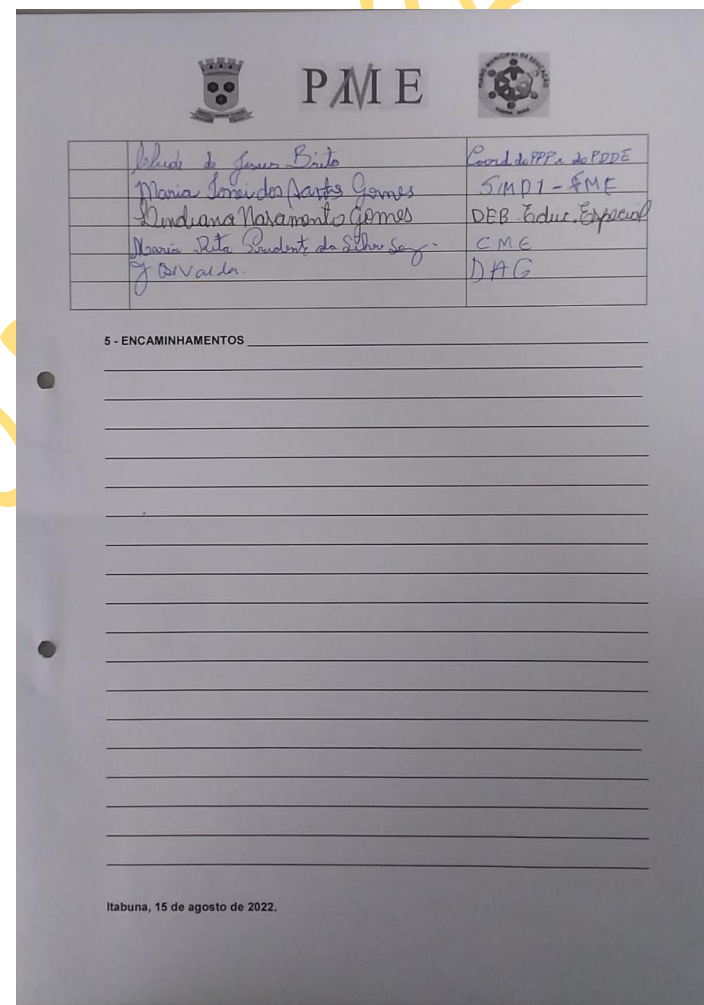 PME
de Jesus Brito Coord do PPP e do PDDE
Maria dos Santos Gomes SIMPI - FME
Lindiana Nascimento Gomes DEB. Educ. Especial
Maria Rita Prudente da Silva CME
Josivaldo. DAG
5 - ENCAMINHAMENTOS
Itabuna, 15 de agosto de 2022.